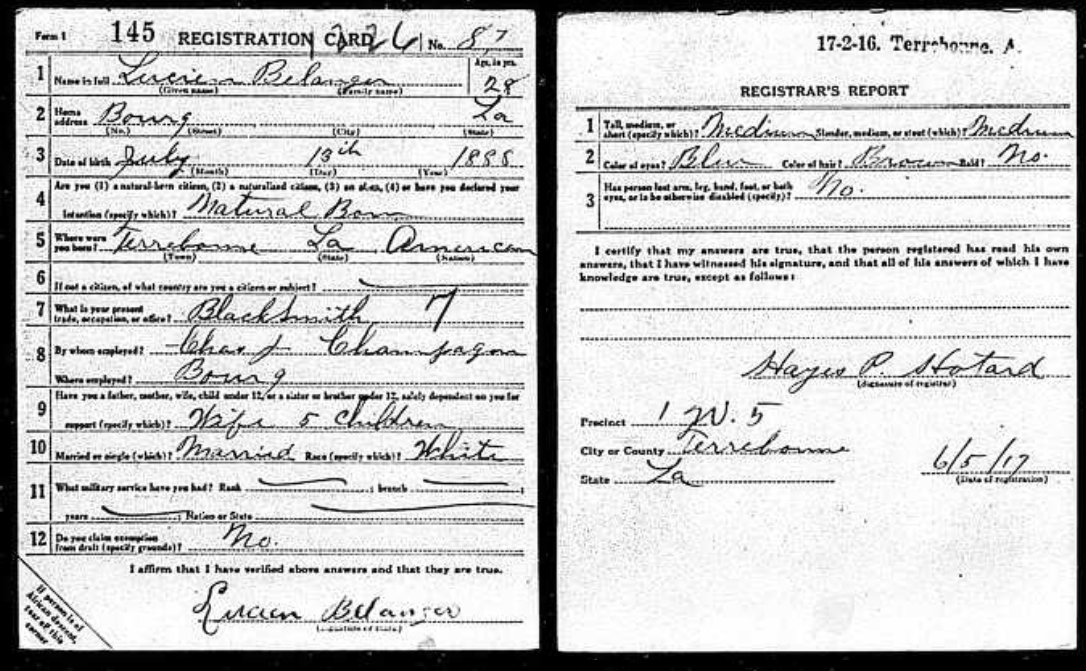 Form 1 145 REGISTRATION CARD No. 87
1 Name in full Lucien Belanger Age, in yrs. 28
(Given name) (Family name)
2 Home address Bourg La
(No.) (Street) (City) (State)
3 Date of birth July 13th 1888
(Month) (Day) (Year)
4 Are you (1) a natural-born citizen, (2) a naturalized citizen, (3) an alien, (4) or have you declared your
intention (specify which)? Natural Born
5 Where were you born? Terrebonne La American
(Town) (State) (Nation)
6 If not a citizen, of what country are you a citizen or subject?
7 What is your present trade, occupation, or office? BlackSmith 7
8 By whom employed? Chas J Champagne
Where employed? Bourg
9 Have you a father, mother, wife, child under 12, or a sister or brother under 12, solely dependent on you for
support (specify which)? Wife 5 Children
10 Married or single (which)? Married Race (specify which)? White
11 What military service have you had? Rank ; branch ;
years ; Nation or State
12 Do you claim exemption from draft (specify grounds)? No.
I affirm that I have verified above answers and that they are true.
Lucien Belanger
If person is of
African descent,
tear off this
corner
17-2-16. Terrebonne. A.
REGISTRAR'S REPORT
1 Tall, medium, or short (specify which)? Medium Slender, medium, or stout (which)? Medium
2 Color of eyes? Blue Color of hair? Brown Bald? No.
3 Has person lost arm, leg, hand, foot, or both eyes, or is he otherwise disabled (specify)? No.
I certify that my answers are true, that the person registered has read his own
answers, that I have witnessed his signature, and that all of his answers of which I have
knowledge are true, except as follows:
Hayes P. Hotard
(Signature of registrar)
Precinct 1 W. 5
City or County Terrebonne
State La 6/5/17
(Date of registration)